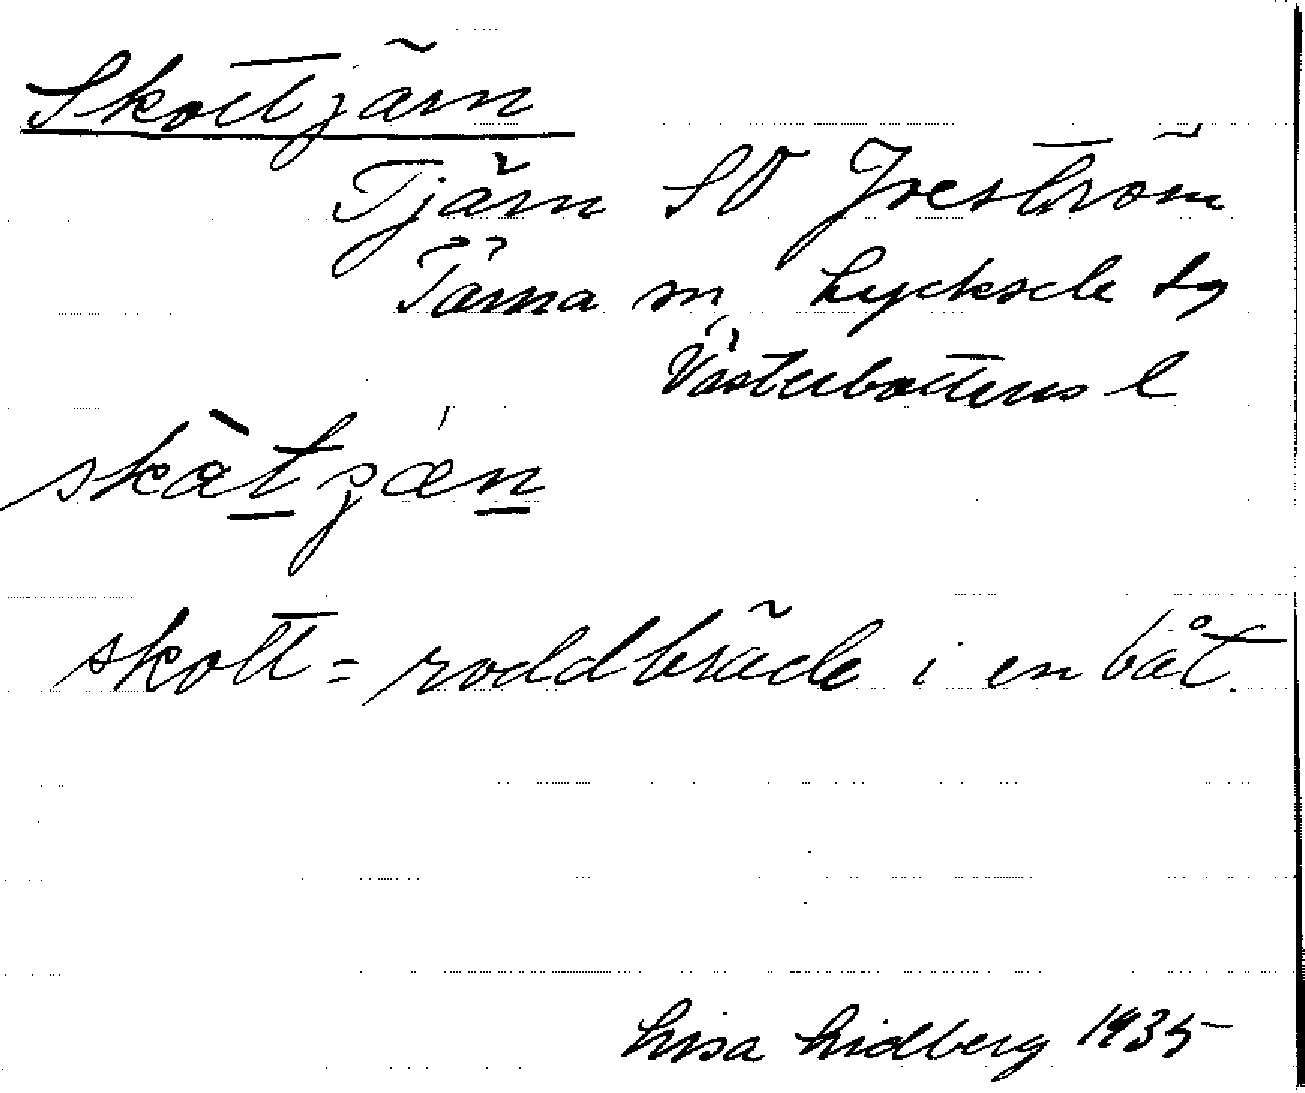 Skottjärn
Tjärn SV Joeström
Tärna sn, Lycksele lg
Västerbottens l
skàtjæ̀n
skott = roddbräde i en båt.
Lisa Lidberg 1935